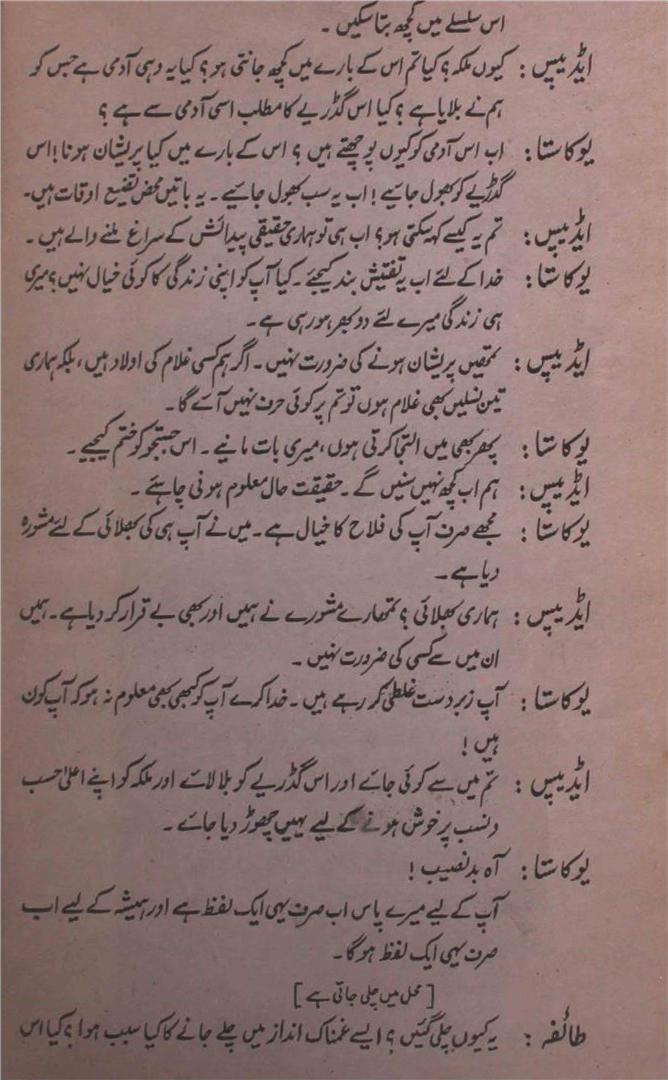 اس سلسلے میں کچھ بتا سکیں ۔
ایڈیپس : کیوں ملکہ ؟ کیا تم اس کے بارے میں کچھ جانتی ہو ؟ کیا یہ وہی آدمی ہے جس کو
ہم نے بلایا ہے ؟ کیا اس گڈریے کا مطلب اسی آدمی سے ہے ؟
یوکاستا : اب اس آدمی کو کیوں پوچھتے ہیں ؟ اس کے بارے میں کیا پریشان ہونا ! اس
گڈریے کو بھول جائیے ! اب یہ سب بھول جائیے ۔ یہ باتیں محض تضیع اوقات ہیں۔
ایڈیپس : تم یہ کیسے کہہ سکتی ہو ؟ اب ہی تو ہماری حقیقی پیدائش کے سراغ ملنے والے ہیں ۔
یوکاستا : خدا کے لئے اب یہ تفتیش بند کیجئے ۔ کیا آپ کو اپنی زندگی کا کوئی خیال نہیں ؟ میری
ہی زندگی میرے لئے دوبھر ہو رہی ہے ۔
ایڈیپس : تمھیں پریشان ہونے کی ضرورت نہیں ۔ اگر ہم کسی غلام کی اولاد ہیں ، بلکہ ہماری
تین نسلیں بھی غلام ہوں تو تم پر کوئی حرف نہیں آئے گا ۔
یوکاستا : پھر بھی میں التجا کرتی ہوں ، میری بات مانیے ۔ اس جستجو کو ختم کیجیے ۔
ایڈیپس : ہم اب کچھ نہیں سنیں گے ۔ حقیقت حال معلوم ہونی چاہئے ۔
یوکاستا : مجھے صرف آپ کی فلاح کا خیال ہے ۔ میں نے آپ ہی کی بھلائی کے لئے مشورہ
دیا ہے ۔
ایڈیپس : ہماری بھلائی ؟ تمھارے مشورے نے ہمیں اور بھی بے قرار کر دیا ہے ۔ ہمیں
ان میں سے کسی کی ضرورت نہیں ۔
یوکاستا : آپ زبردست غلطی کر رہے ہیں ۔ خدا کرے آپ کو کبھی بھی معلوم نہ ہو کہ آپ کون
ہیں !
ایڈیپس : تم میں سے کوئی جائے اور اس گڈریے کو بلا لائے اور ملکہ کو اپنے اعلیٰ حسب
و نسب پر خوش ہونے کے لیے یہیں چھوڑ دیا جائے ۔
یوکاستا : آہ بدنصیب !
آپ کے لیے میرے پاس اب صرف یہی ایک لفظ ہے اور ہمیشہ کے لیے اب
صرف یہی ایک لفظ ہوگا ۔
[ محل میں چلی جاتی ہے ]
طائفہ : یہ کیوں چلی گئیں ؟ ایسے غمناک انداز میں چلے جانے کا کیا سبب ہوا ؟ کیا اس